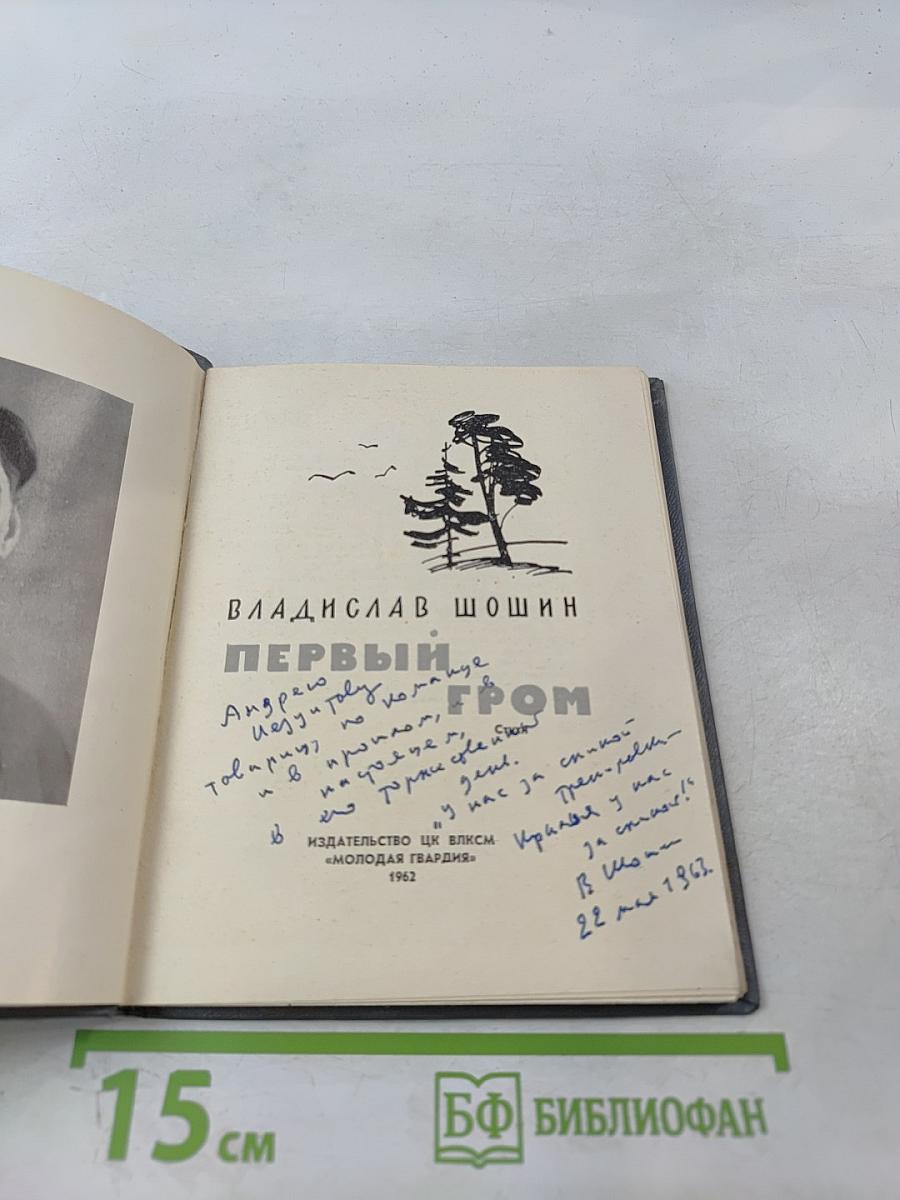 ВЛАДИСЛАВ ШОШИН
ПЕРВЫЙ
ГРОМ
Стихи
Андрею
Иезуитову
товарищу по команде
и в прошлом, и в
настоящем,
в его торжественный
день.
"У нас за спиной
тренировки—
Крылья у нас
за спиной!"
В Шошин
22 мая 1963.
ИЗДАТЕЛЬСТВО ЦК ВЛКСМ
«МОЛОДАЯ ГВАРДИЯ»
1962
15 см
БФ БИБЛИОФАН